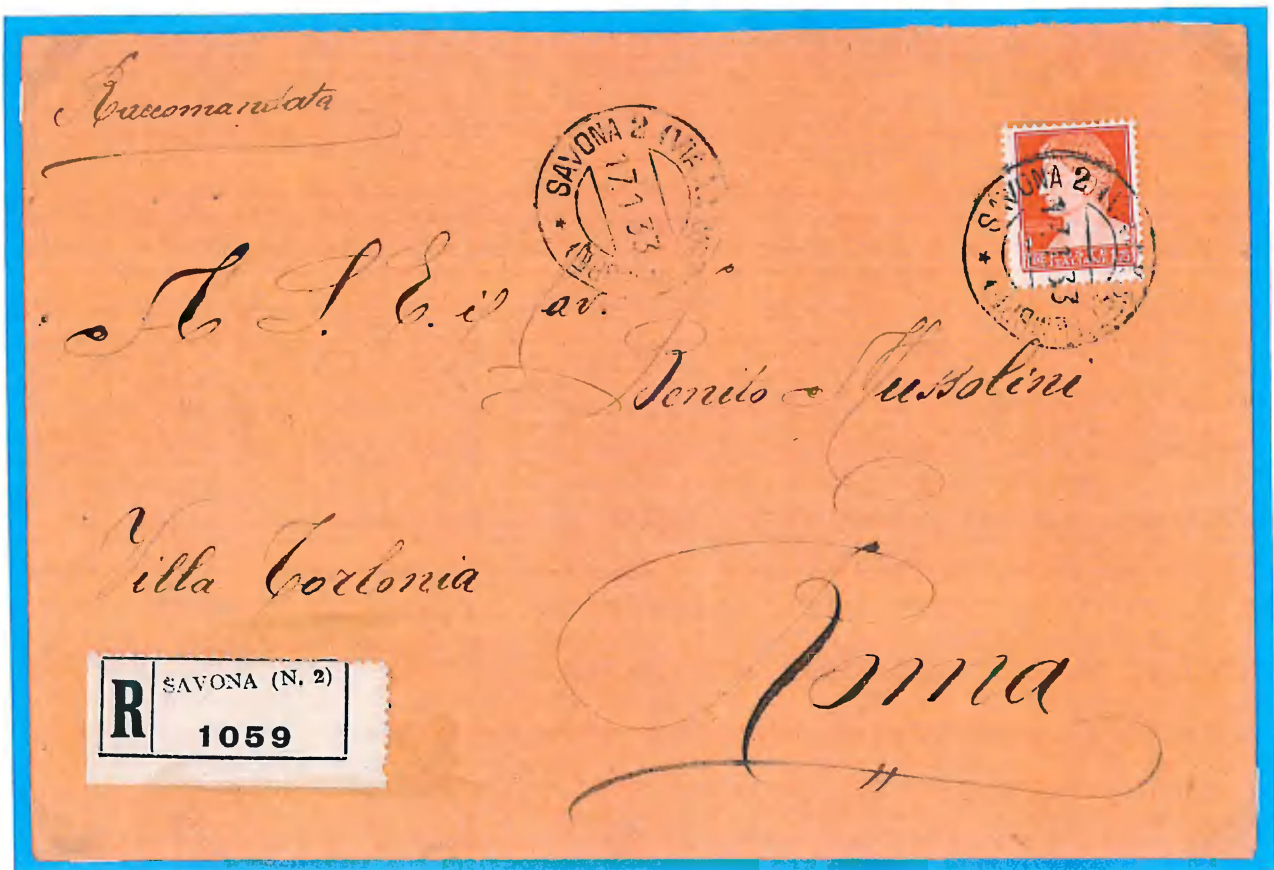 Raccomandata
SAVONA 2 (VIA
17.1.33
SAVONA 2
17.1.33
A S. E. il av.
Benito Mussolini
Villa Torlonia
Roma
R
SAVONA (N. 2)
1059